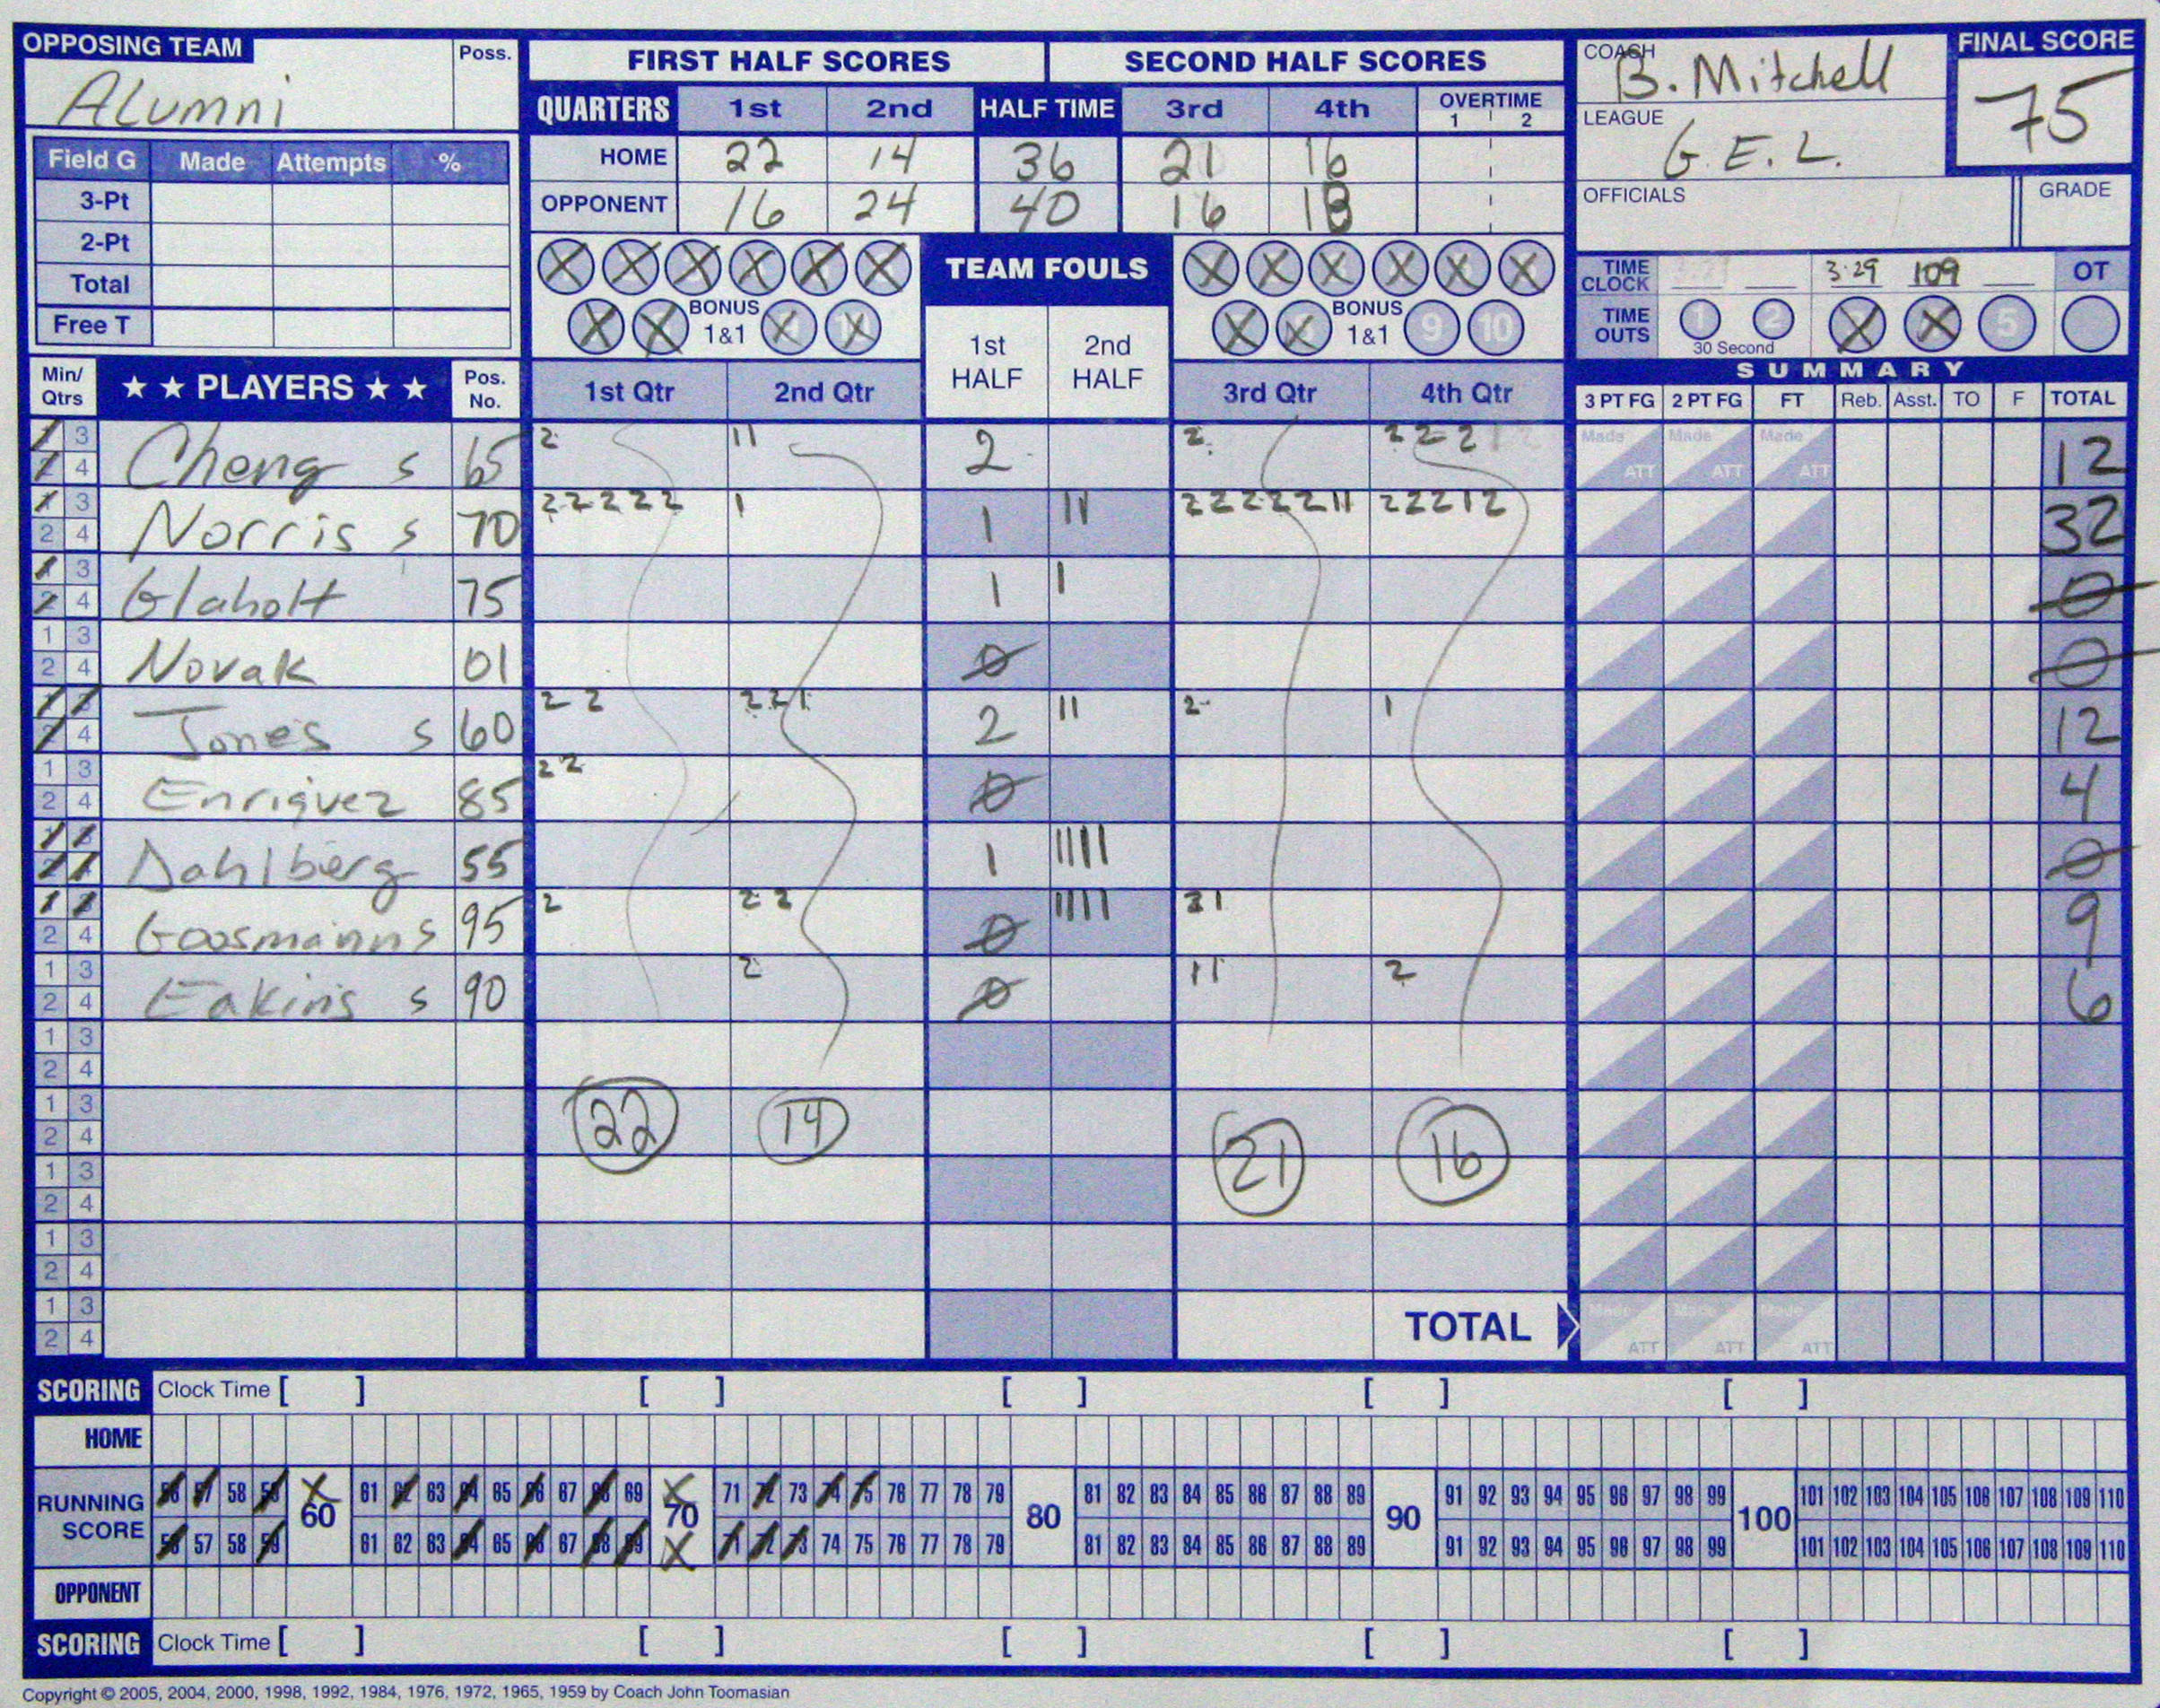 OPPOSING TEAM
Alumni
Poss.
FIRST HALF SCORES SECOND HALF SCORES
COACH B. Mitchell
FINAL SCORE
75
QUARTERS 1st 2nd HALF TIME 3rd 4th OVERTIME 1 2
HOME 22 14 36 21 16
OPPONENT 16 24 40 16 18
LEAGUE G.E.L.
OFFICIALS
GRADE
Field G Made Attempts %
3-Pt
2-Pt
Total
Free T
TEAM FOULS
BONUS 1&1
BONUS 1&1 9 10
1st HALF 2nd HALF
TIME CLOCK 3:29 109 OT
TIME OUTS 1 2 5
30 Second
SUMMARY
Min/ Qtrs ★ ★ PLAYERS ★ ★ Pos. No. 1st Qtr 2nd Qtr 3rd Qtr 4th Qtr 3 PT FG 2 PT FG FT Reb. Asst. TO F TOTAL
Made Made Made
ATT ATT ATT
Cheng s 65 2 11 2 2 2 2 2 12
Norris s 70 2 2 2 2 2 1 1 11 2 2 2 2 2 2 1 1 2 2 2 1 2 32
Glaholt 75 1 1 0
Novak 01 0 0
Jones s 60 2 2 2 2 1 2 11 2 1 12
Enriquez 85 2 2 0 4
Dahlberg 55 1 1111 0
Goosmann s 95 2 2 2 0 1111 2 1 9
Eakins s 90 2 0 1 1 2 6
1 3
2 4
1 3
2 4
22 14 21 16
1 3
2 4
1 3
2 4
1 3
2 4
TOTAL
Made Made Made
ATT ATT ATT
SCORING Clock Time [ ] [ ] [ ] [ ] [ ]
HOME
RUNNING SCORE
56 57 58 59 60 61 62 63 64 65 66 67 68 69 70 71 72 73 74 75 76 77 78 79 80 81 82 83 84 85 86 87 88 89 90 91 92 93 94 95 96 97 98 99 100 101 102 103 104 105 106 107 108 109 110
56 57 58 59 61 62 63 64 65 66 67 68 69 71 72 73 74 75 76 77 78 79 81 82 83 84 85 86 87 88 89 91 92 93 94 95 96 97 98 99 101 102 103 104 105 106 107 108 109 110
OPPONENT
SCORING Clock Time [ ] [ ] [ ] [ ] [ ]
Copyright © 2005, 2004, 2000, 1998, 1992, 1984, 1976, 1972, 1965, 1959 by Coach John Toomasian